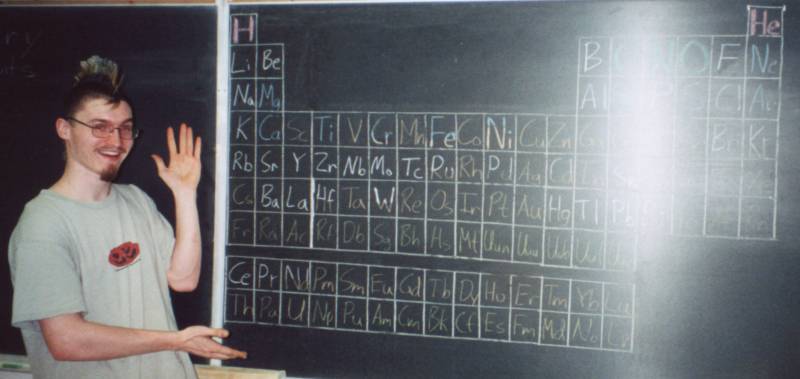 ry
H He
Li Be B O F Ne
Na Mg Al Cl Ar
K Ca Sc Ti V Cr Mn Fe Co Ni Cu Zn Ga Br Kr
Rb Sr Y Zr Nb Mo Tc Ru Rh Pd Ag Cd In
Cs Ba La Hf Ta W Re Os Ir Pt Au Hg Tl Pb
Fr Ra Ac Rf Db Sg Bh Hs Mt Uun Uuu Uub
Ce Pr Nd Pm Sm Eu Gd Tb Dy Ho Er Tm Yb Lu
Th Pa U Np Pu Am Cm Bk Cf Es Fm Md No Lr